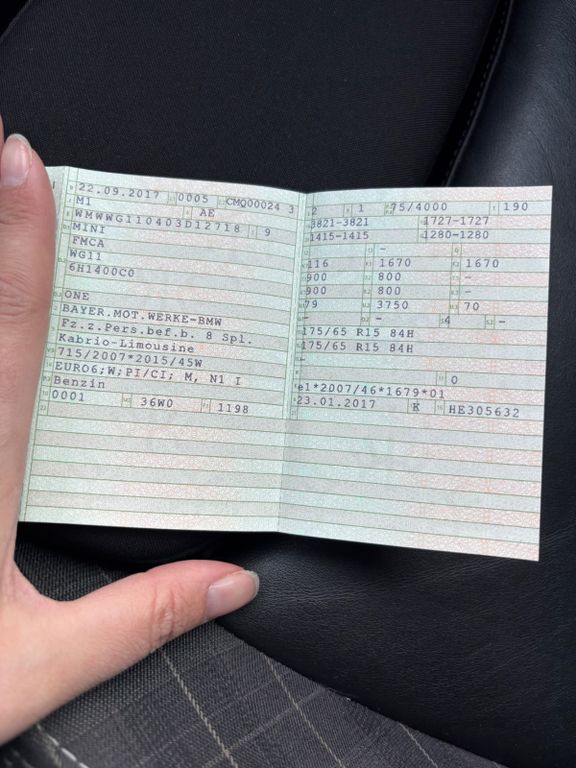 22.09.2017 0005 CMQ00024 3
M1 AE
WMWWG110403D12718 9
MINI
FMCA
WG11
6H1400C0
ONE
BAYER.MOT.WERKE-BMW
Fz.z.Pers.bef.b. 8 Spl.
Kabrio-Limousine
715/2007*2015/45W
EURO6;W;PI/CI; M, N1 I
Benzin
0001 36W0 1198
2 1 75/4000 190
3821-3821 1727-1727
1415-1415 1280-1280
-
116 1670 1670
900 800 -
900 800 -
79 3750 70
- - 4 -
175/65 R15 84H
175/65 R15 84H
-
-
0
e1*2007/46*1679*01
23.01.2017 K HE305632